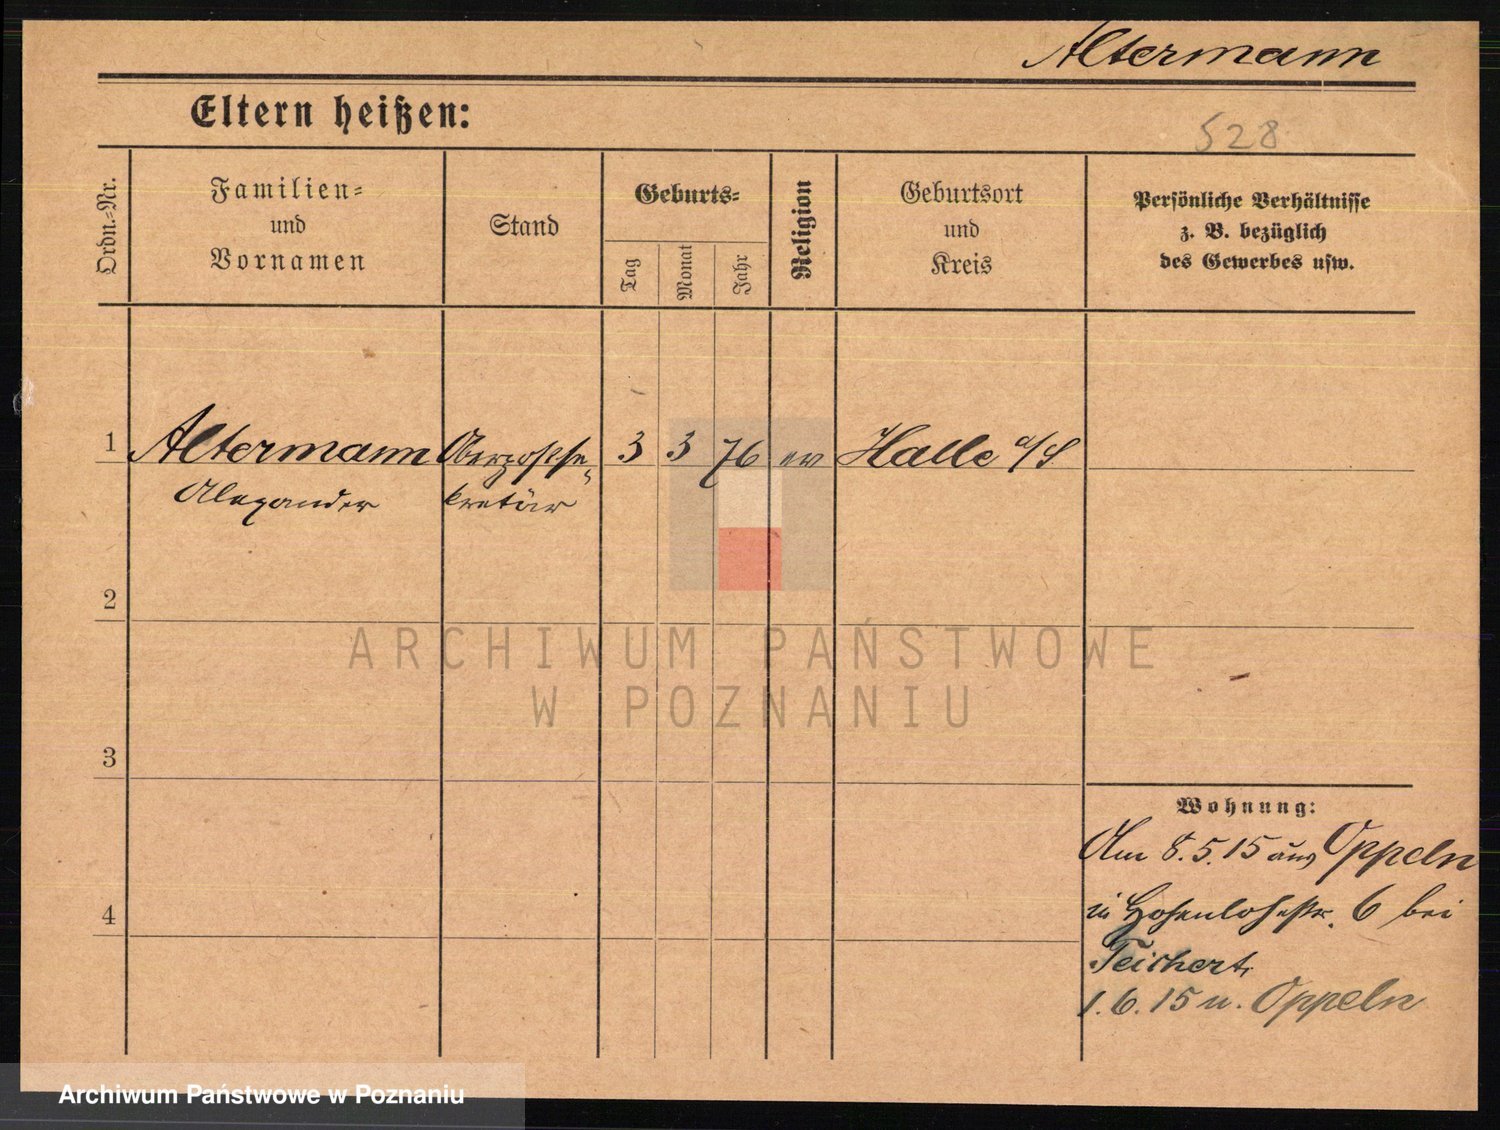 Altermann
Eltern heißen:
528
Ordn.-Nr.
Familien-
und
Vornamen
Stand
Geburts-
Tag
Monat
Jahr
Religion
Geburtsort
und
Kreis
Persönliche Verhältnisse
z. B. bezüglich
des Gewerbes usw.
1 Altermann Oberpostse- 3 3 76 ev Halle a/S
Alexander kretär
2
ARCHIWUM PAŃSTWOWE
W POZNANIU
3
Wohnung:
Am 8.5.15 aus Oppeln
4
in Hohenlohestr. 6 bei
Teichert.
1.6.15 n. Oppeln
Archiwum Państwowe w Poznaniu